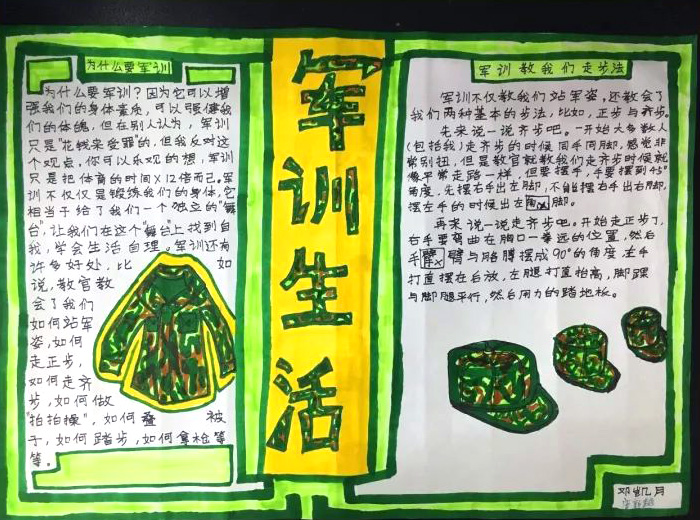 为什么要军训
为什么要军训？因为它可以增
强我们的身体素质，可以强健我
们的体魄，但在别人认为，军训
只是"花钱来受罪"的，但我反对这
个观点，你可以乐观的想，军训
只是把体育的时间×12倍而已。军
训不仅仅是锻炼我们的身体，它
相当于给了我们一个独立的"舞
台"，让我们在这个"舞台"上找到自
我，学会生活自理。军训还有
许多好处，比如
说，教官教
会了我们
如何站军
姿，如何
走正步，
如何走齐
步，如何做
"拍拍操"，如何叠被
子，如何踏步，如何拿枪等
等。
军训生活
军训教我们走步法
军训不仅教我们站军姿，还教会了
我们两种基本的步法，比如，正步与齐步。
先来说一说齐步吧。一开始大多数人
(包括我)走齐步的时候同手同脚，感觉非
常别扭，但是教官就教我们走齐步时候就
像平常走路一样，但要摆手，手要摆到45°
角度，先摆右手出左脚，不能摆右手出右脚，
摆左手的时候出左脚。
再来说一说走齐步吧。开始走正步了，
右手要弯曲在胸口一拳远的位置，然后
手臂与胳膊摆成90°的角度，左手
打直摆在后放，左腿打直抬高，脚踝
与脚腿平行，然后用力的踏地板。
邓凯月